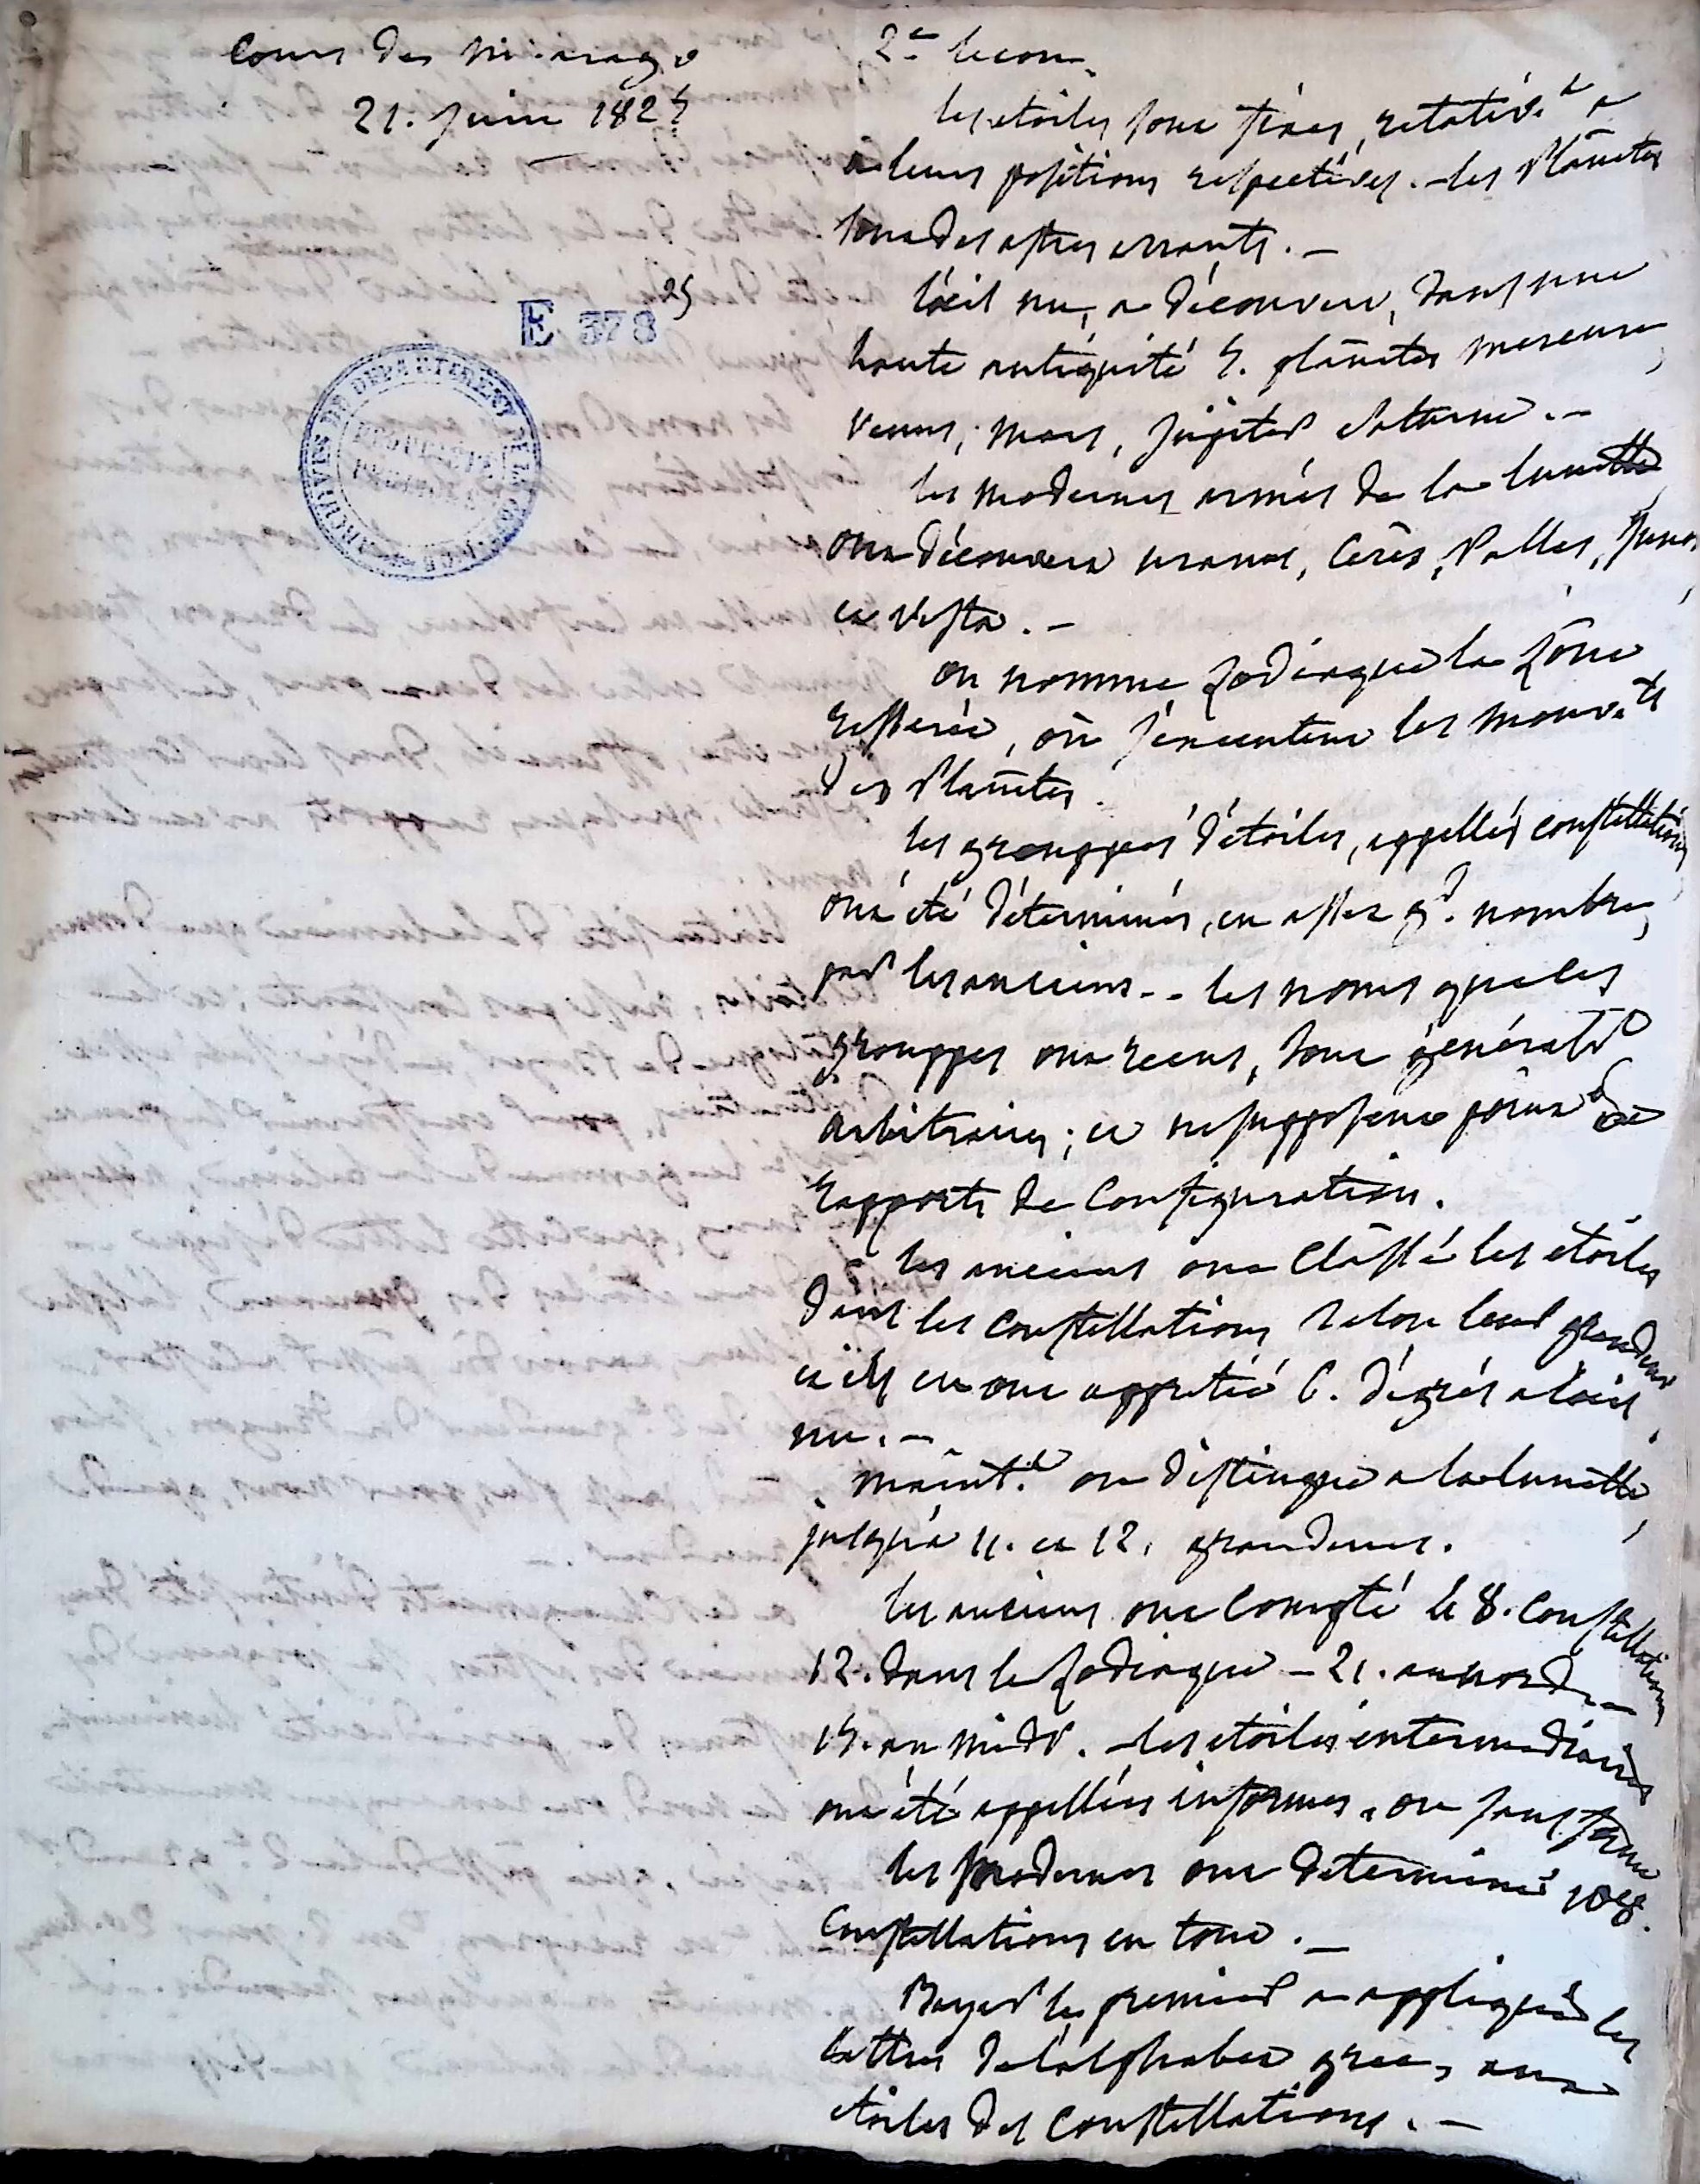 Cours de Mr arago
21. Juin 1825
E 378 25
ARCHIVES DU DÉPARTEMENT DE LA CORRÈZE
2e lecon.
les etoiles sont fixes, relativt a
a leurs positions respectives. - les Planetes
sont des astres errants. -
l'oeil nu, a découvert, dans une
haute antiquité 5. planetes mercure,
venus, mars, jupiter saturne. -
les modernes armés de la lunette
ont découvert uranus, Cérès, Pallas, Junon,
et vesta. -
on nomme Zodiaque la Zône
resserée, où s'executent les mouvts
des Planetes.
les grouppes d'étoiles, appellés constellations
ont été déterminés, en assez gd. nombre,
par les anciens - - les noms que ces
grouppes ont recus, sont généralt
arbitraires; et ne supposent point de
rapports de Configuration.
les anciens ont Classé les étoiles
dans les constellations selon leur grandeur
et ils en ont apprétié 6. dégrés a l'oeil
nu. -
maintt on distingue a la lunette,
jusqu'a 11. et 12. grandeurs.
les anciens ont compté 48. Constellations
12. dans le Zodiaque - 21. au nord -
15. au midi. - les etoiles intermediaires
ont été appellées informes, ou sans forme
les modernes ont determiné 108.
Constellations en tout. -
Bayer le premier a appliqué les
lettres de l'alphabet grec, aux
etoiles des Constellations. -